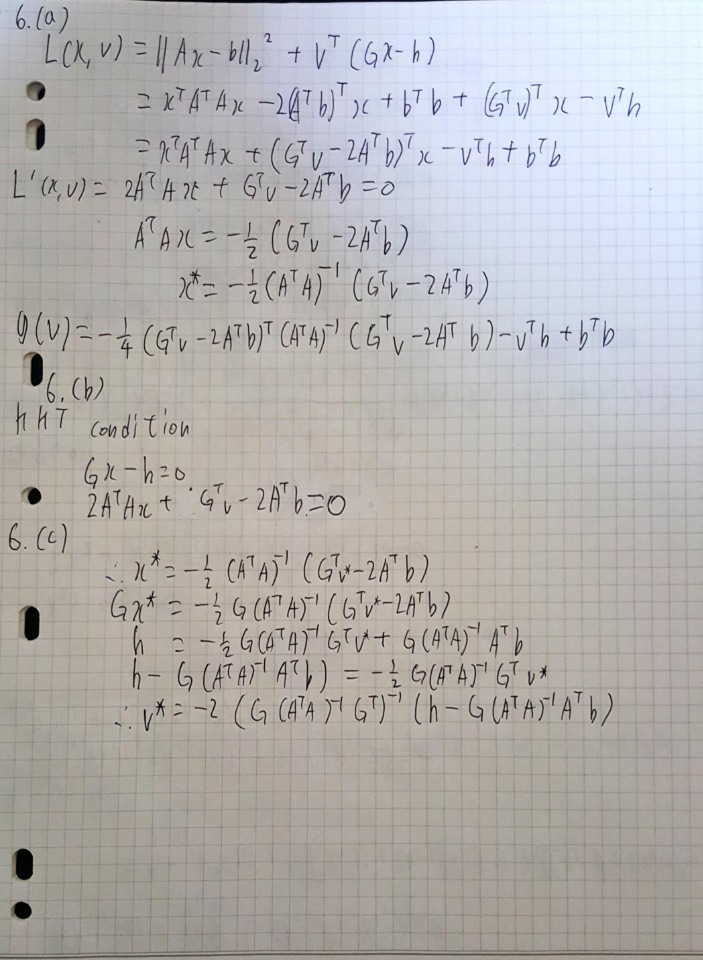 6.(a)
L(x, v) = ||Ax - b||₂² + vᵀ(Gx - h)
= xᵀAᵀAx - 2(Aᵀb)ᵀx + bᵀb + (Gᵀv)ᵀx - vᵀh
= xᵀAᵀAx + (Gᵀv - 2Aᵀb)ᵀx - vᵀh + bᵀb
L'(x, v) = 2AᵀAx + Gᵀv - 2Aᵀb = 0
AᵀAx = -½(Gᵀv - 2Aᵀb)
x* = -½(AᵀA)⁻¹(Gᵀv - 2Aᵀb)
g(v) = -¼(Gᵀv - 2Aᵀb)ᵀ(AᵀA)⁻¹(Gᵀv - 2Aᵀb) - vᵀh + bᵀb
6.(b)
kkT condition
Gx - h = 0
2AᵀAx + Gᵀv - 2Aᵀb = 0
6.(c)
∴ x* = -½(AᵀA)⁻¹(Gᵀv* - 2Aᵀb)
Gx* = -½G(AᵀA)⁻¹(Gᵀv* - 2Aᵀb)
h = -½G(AᵀA)⁻¹Gᵀv* + G(AᵀA)⁻¹Aᵀb
h - G(AᵀA)⁻¹Aᵀb) = -½G(AᵀA)⁻¹Gᵀv*
∴ v* = -2(G(AᵀA)⁻¹Gᵀ)⁻¹(h - G(AᵀA)⁻¹Aᵀb)